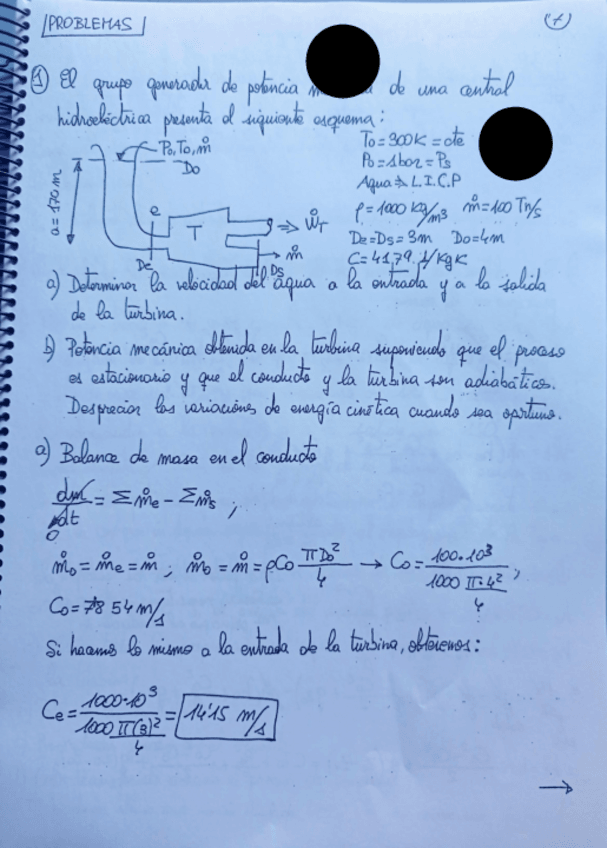 PROBLEMAS
(7)
① El grupo generador de potencia de una central
hidroeléctrica presenta el siguiente esquema:
Po, To, ṁ
Do
a = 170 m
e
T
ẆT
ṁ
De
Ds
To = 300K = cte
Po = 1 bar = Ps
Agua L.I.C.P
ρ = 1000 Kg/m³ ṁ = 100 Tn/s
De = Ds = 3m Do = 4m
C = 4179 J/KgK
a) Determinar la velocidad del agua a la entrada y a la salida
de la turbina.
b) Potencia mecánica obtenida en la turbina suponiendo que el proceso
es estacionario y que el conducto y la turbina son adiabáticos.
Despreciar las variaciones de energía cinética cuando sea oportuno.
a) Balance de masa en el conducto
dm/dt = Σṁe - Σṁs ;
0
ṁo = ṁe = ṁ ; ṁo = ṁ = ρCo πDo²/4 → Co = 100·10³/(1000 π·4²/4) ;
Co = 7'8 54 m/s
Si hacemos lo mismo a la entrada de la turbina, obtenemos:
Ce = 1000·10³/(1000 π(3)²/4) = 14'15 m/s
→